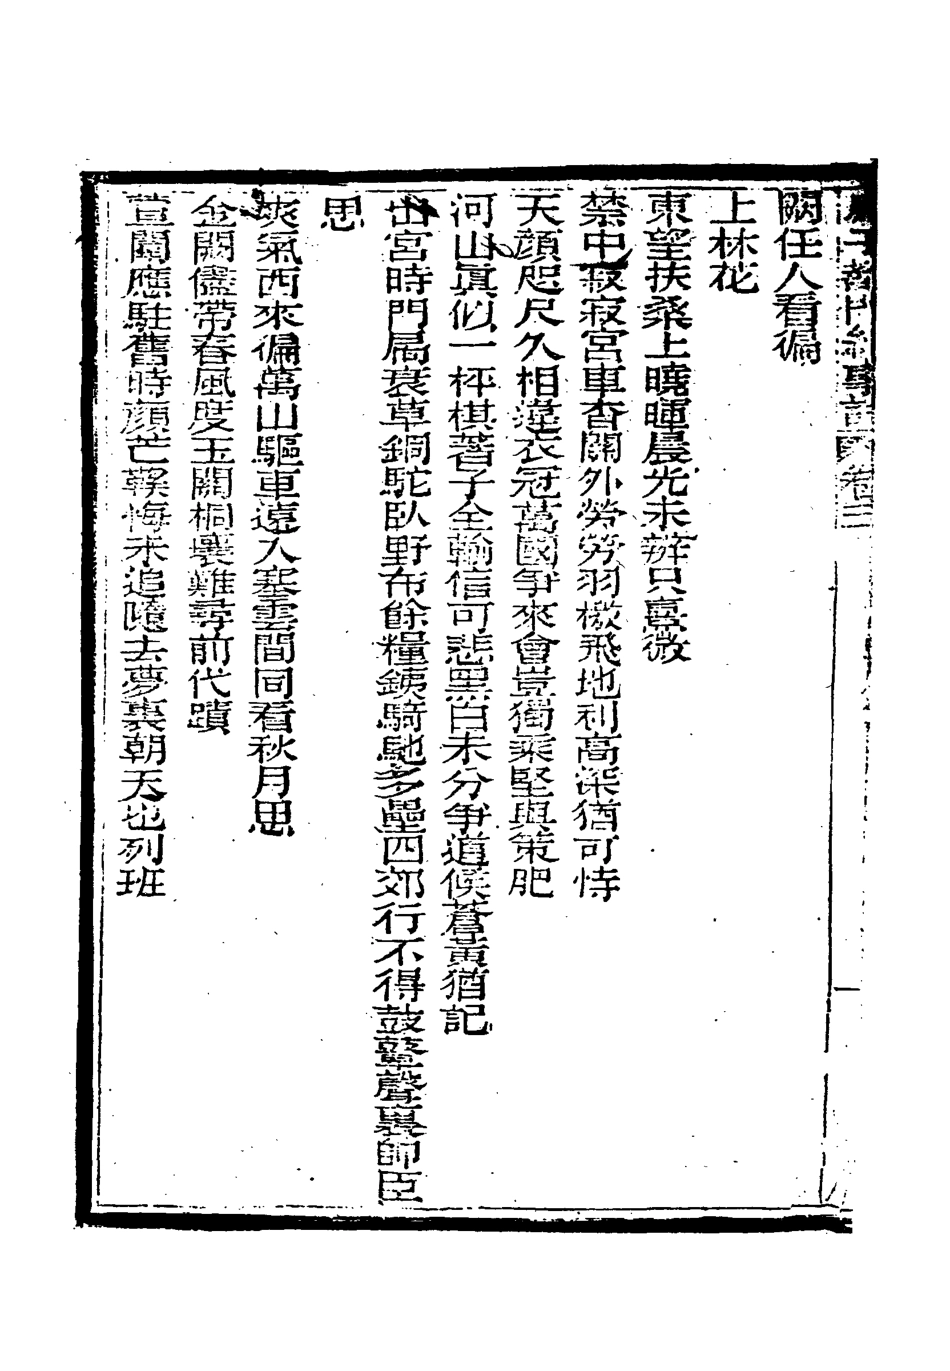 闕任人看徧
上林花
東望扶桑上曉暉晨光未辨只熹微
禁中寂寂宮車杳關外勞勞羽檄飛地利高深猶可恃
天顏咫尺久相違衣冠萬國爭來會豈獨乘堅與策肥
河山眞似一枰棋著子全輸信可悲黑白未分爭道候蒼黃猶記
出宮時門局衰草銅駝臥野布餘糧鐵騎馳多壘四郊行不得鼓鼙聲裏帥臣
思
爽氣西來徧萬山驅車遠入塞雲間同看秋月思
金闕儘帶春風度玉關桐壤難尋前代蹟
萱闈應駐舊時顏芒鞵悔未追隨去夢裏朝天也列班